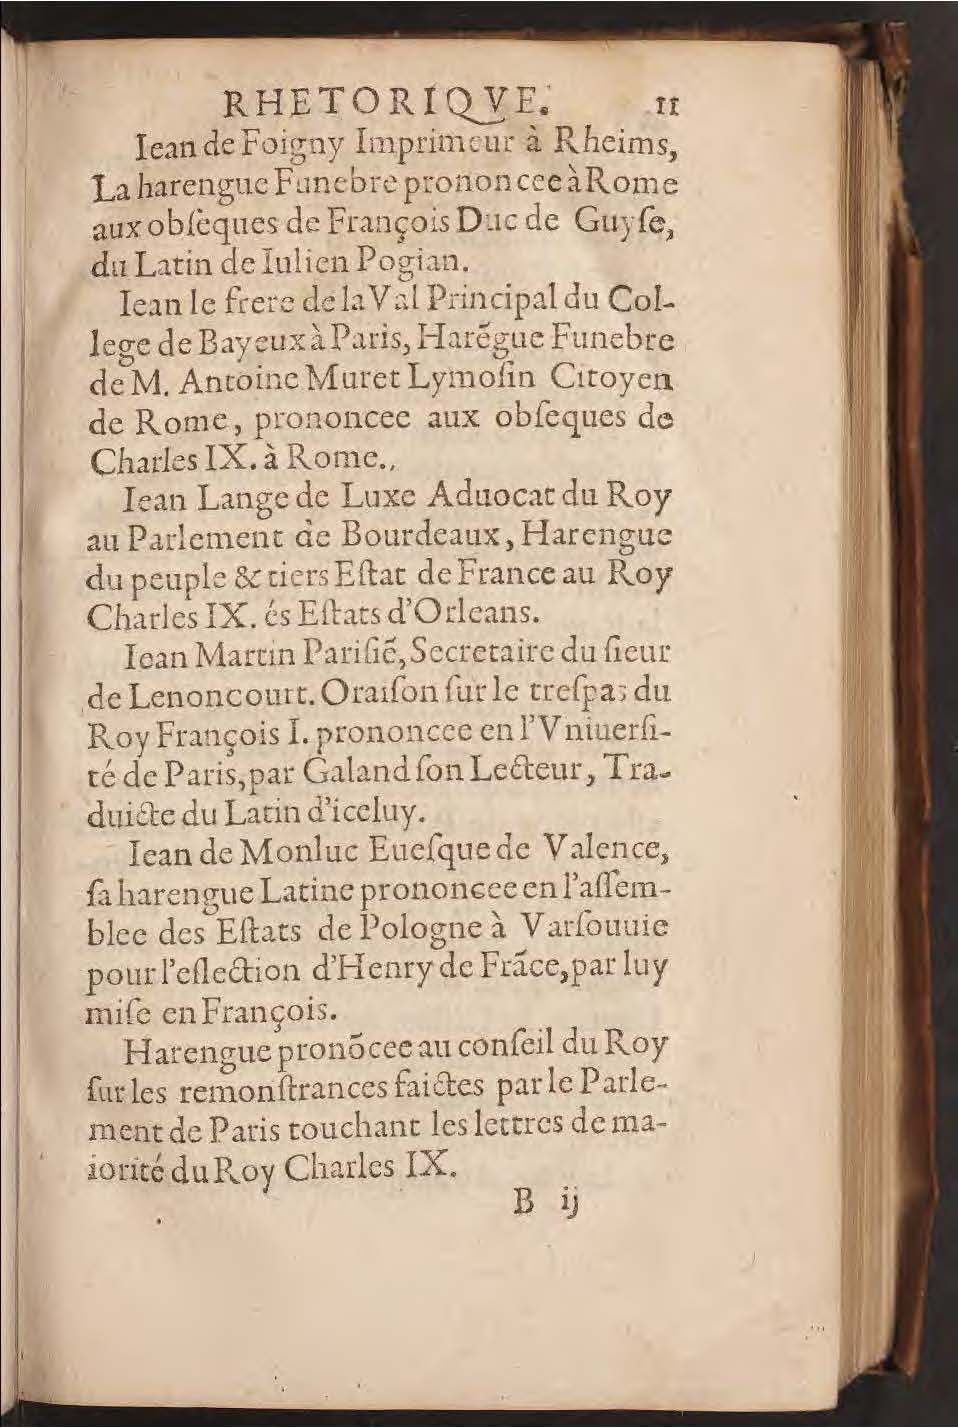 RHETORIQVE. 11
Iean de Foigny Imprimeur à Rheims,
La harengue Funebre prononcee à Rome
aux obſeques de François Duc de Guyſe,
du Latin de Iulien Pogian.
Iean le frere de la Val Principal du Col-
lege de Bayeux à Paris, Harẽgue Funebre
de M. Antoine Muret Lymoſin Citoyen
de Rome, prononcee aux obſeques de
Charles IX. à Rome.,
Iean Lange de Luxe Aduocat du Roy
au Parlement de Bourdeaux, Harengue
du peuple & tiers Eſtat de France au Roy
Charles IX. és Eſtats d'Orleans.
Iean Martin Pariſiẽ, Secretaire du ſieur
de Lenoncourt. Oraiſon ſur le treſpas du
Roy François I. prononcee en l'Vniuerſi-
té de Paris, par Galand ſon Lecteur, Tra-
duicte du Latin d'iceluy.
Iean de Monluc Eueſque de Valence,
ſa harengue Latine prononcee en l'aſſem-
blee des Eſtats de Pologne à Varſouuie
pour l'eſlection d'Henry de Frãce, par luy
miſe en François.
Harengue pronõcee au conſeil du Roy
ſur les remonſtrances faictes par le Parle-
ment de Paris touchant les lettres de ma-
iorité du Roy Charles IX.
B ij